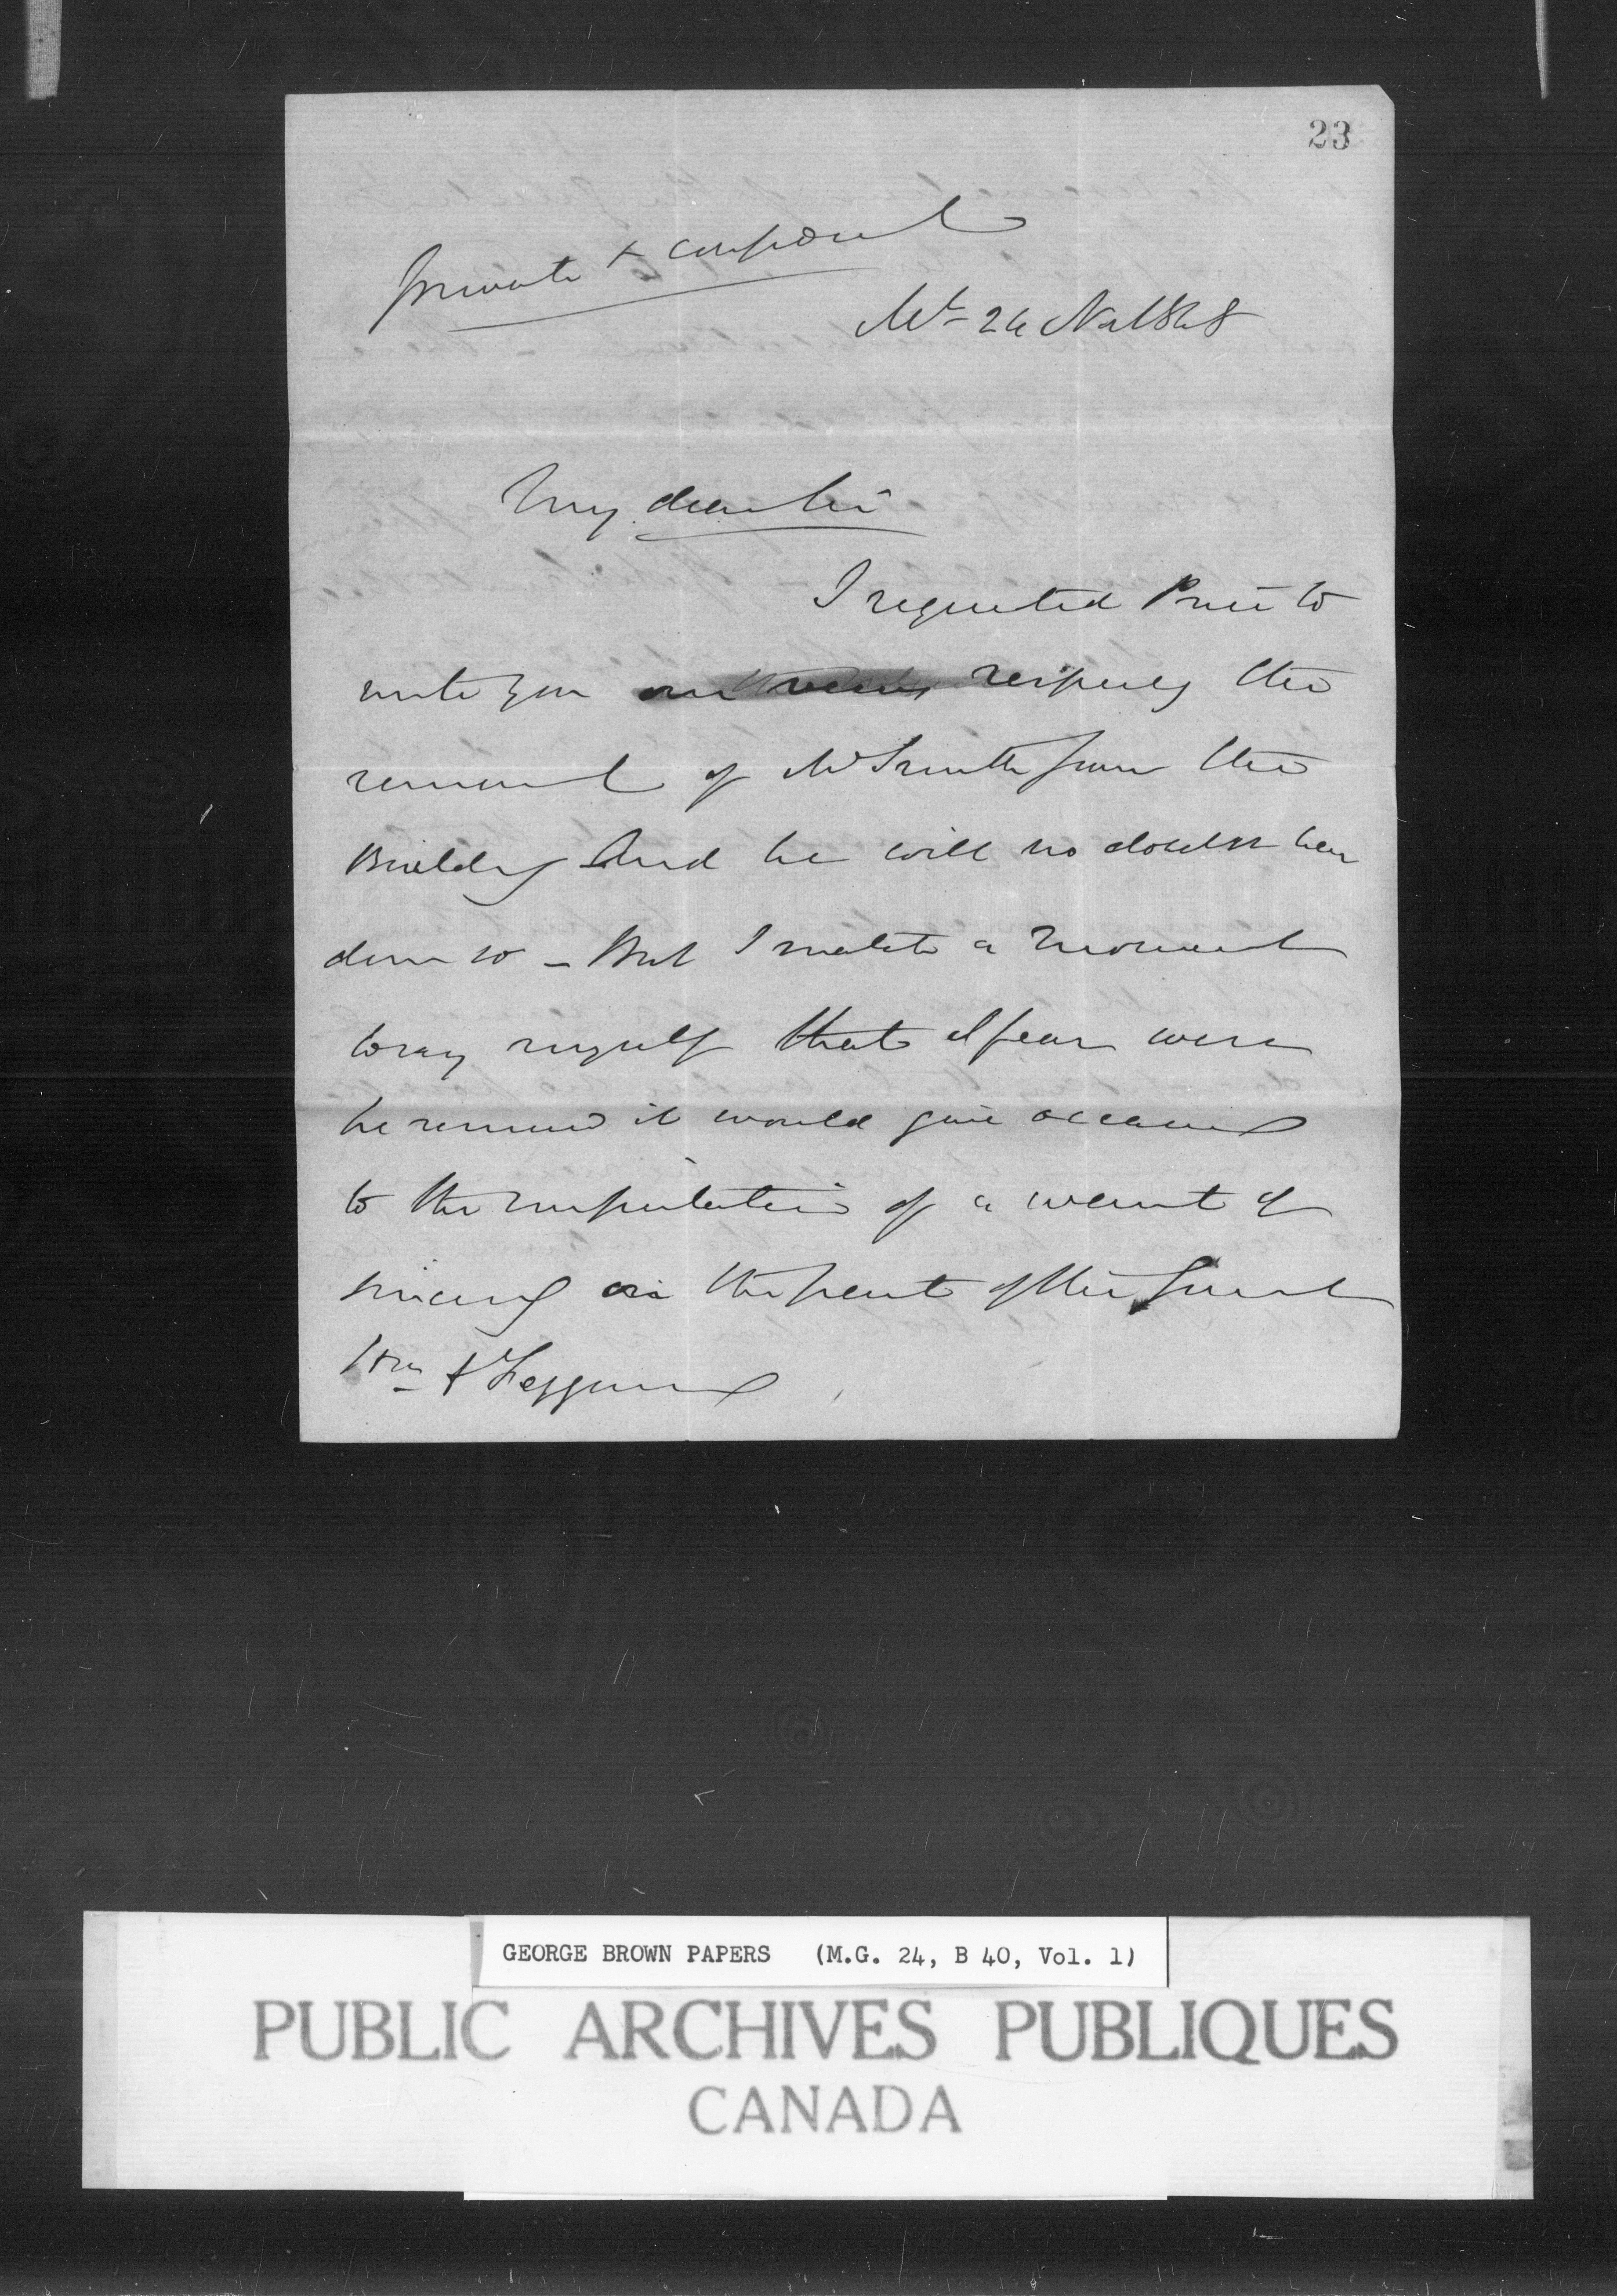 23
Private & confidl
Mtl 24 Nov 1848
My dear Sir
I requested Price to
write you respecting the
removal of Mr Smith from the
Building And he will no doubt have
done so - But I snatch a moment
to say myself that I fear were
he removed it would give occasion
to the imputation of a want of
sincerity on the part of the Govt
Wm
GEORGE BROWN PAPERS (M.G. 24, B 40, Vol. 1)
PUBLIC ARCHIVES PUBLIQUES
CANADA